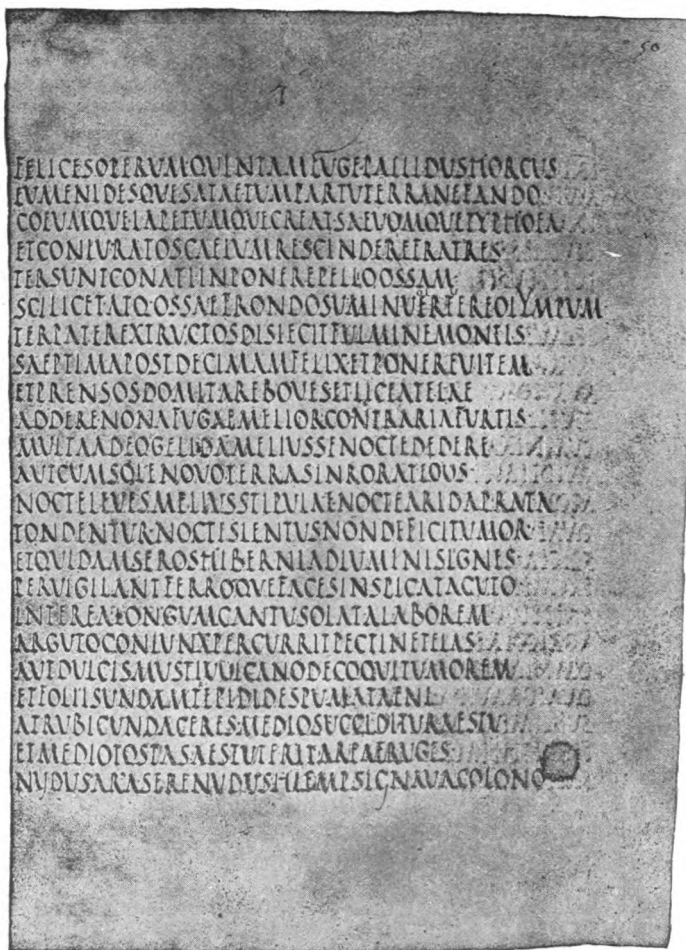 50
FELICESOPERVMQVINTAMFVGEPALLIDVSHORCVS
EVMENIDESQVESATAETVMPARTVTERRANEFANDO
COEVMQVEIAPETVMQVECREATSAEVOMQVETYPHOEA
ETCONIVRATOSCAELVMRESCINDEREFRATRES
TERSVNTCONATIINPONEREPELIOOSSAM
SCILICETATQ·OSSAEFRONDOSVMINVERTEREOLYMPVM
TERPATEREXTRVCTOSDISIECITFVLMINEMONTIS
SAEPTIMAPOSTDECIMAMFELIXETPONEREVITEM
ETPRENSOSDOMITAREBOVESETLICEATELAE
ADDERENONAFVGAEMELIORCONTRARIAFVRTIS
MVLTAADEOGELIDAMELIVSSENOCTEDEDERE
AVTCVMSOLENOVOTERRASINRORATEOVS
NOCTELEVESMELIVSSTIPVLAENOCTEARIDAPRATA
TONDENTVRNOCTISLENTVSNONDEFICITVMOR
ETQVIDAMSEROSHIBERNIADLVMINISIGNES
PERVIGILANTFERROQVEFACESINSPICATACVTO
INTEREALONGVMCANTVSOLATALABOREM
ARGVTOCONIVNXPERCVRRITPECTINETELAS
AVTDVLCISMVSTIVVLCANODECOQVITVMOREM
ETFOLIISVNDAMTEPIDIDESPVMATAENI
ATRVBICVNDACERESMEDIOSVCCIDITVRAESTV
ETMEDIOTOSTASAESTVTERITAREAFRVGES
NVDVSARASERENVDVSHIEMPSIGNAVACOLONO